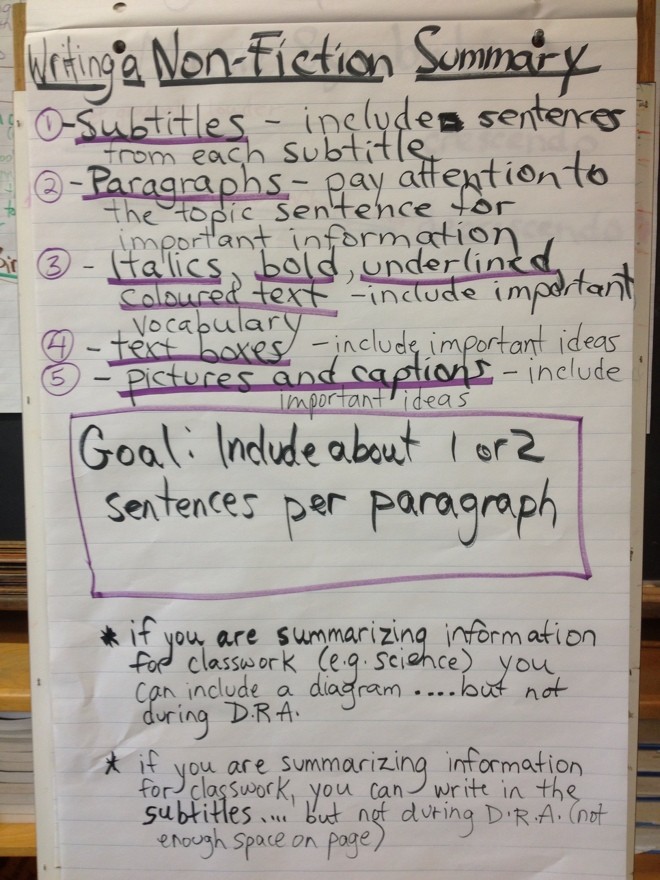 Writing a Non-Fiction Summary
①-Subtitles - include sentences
from each subtitle
②-Paragraphs - pay attention to
the topic sentence for
important information
③ - Italics, bold, underlined
coloured text - include important
vocabulary
④ - text boxes - include important ideas
⑤ - pictures and captions - include
important ideas
Goal: Include about 1 or 2
sentences per paragraph
* if you are summarizing information
for classwork (e.g. science) you
can include a diagram ....but not
during D.R.A.
* if you are summarizing information
for classwork, you can write in the
subtitles.... but not during D.R.A. (not
enough space on page)